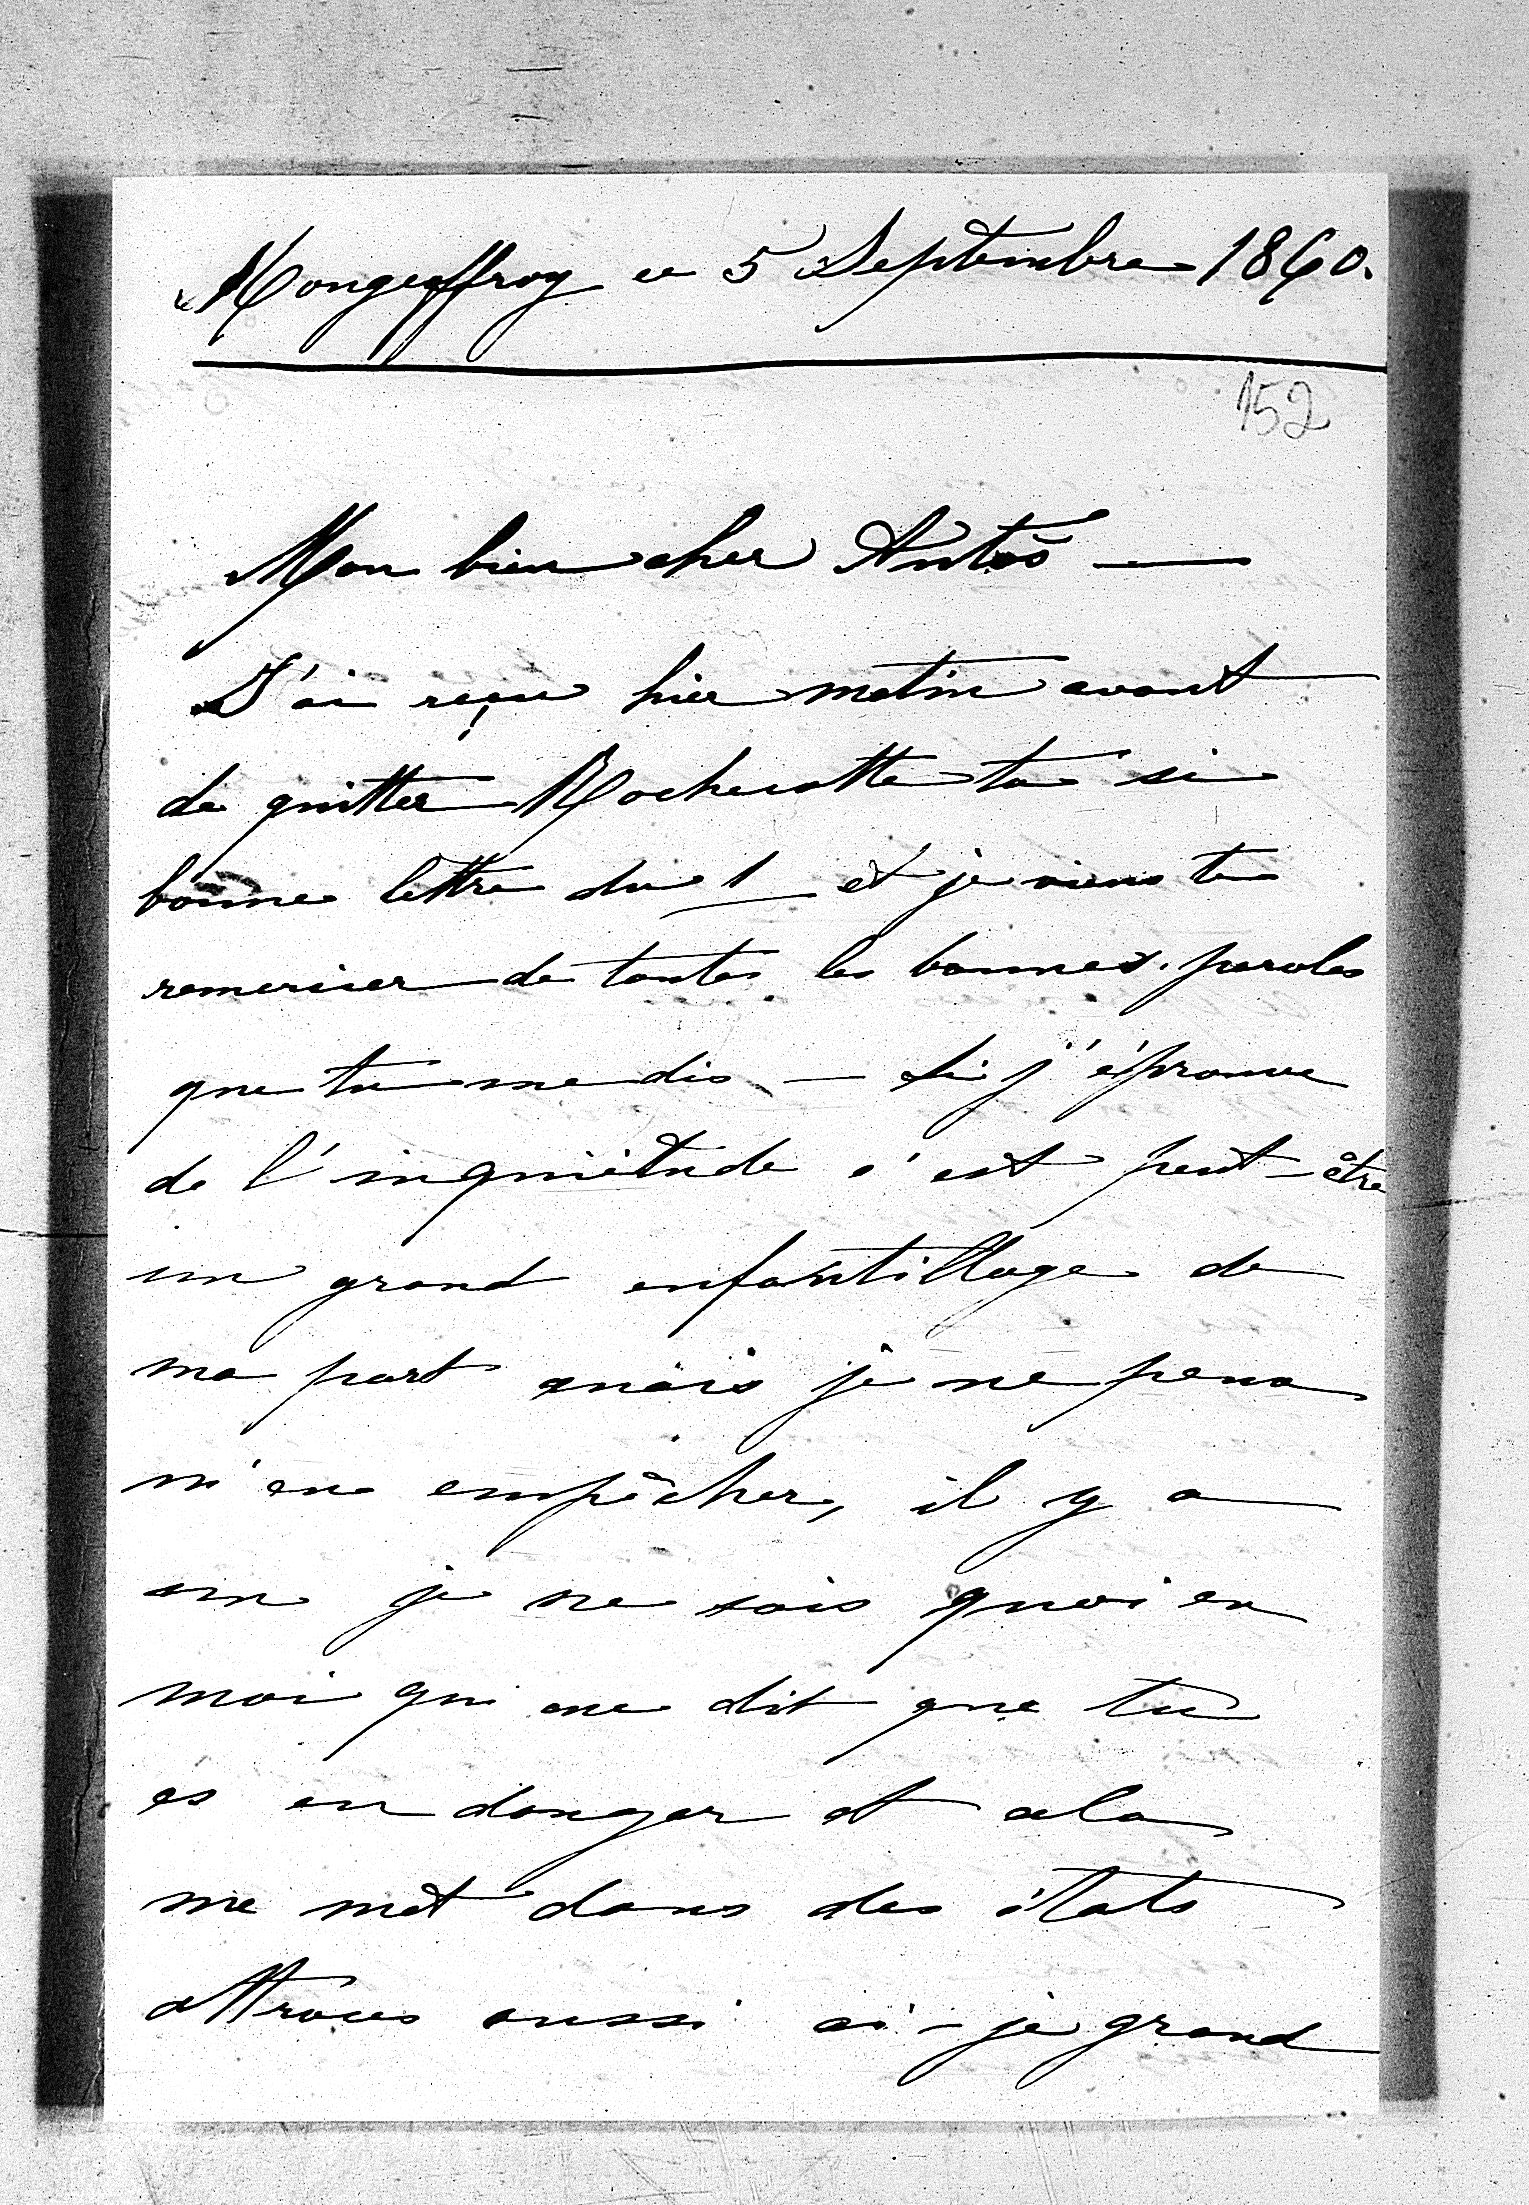 Mongeoffroy ce 5 Septembre 1860.
152
Mon bien cher Antoś —
J'ai reçu hier matin avant
de quitter Rochecotte ta si
bonne lettre du 1 et je viens te
remercier de toutes les bonnes paroles
que tu me dis — Si j'éprouve
de l'inquiètude c'est peut-être
un grand enfantillage de
ma part mais je ne peux
m'en empêcher, il y a
un je ne sais quoi en
moi qui me dit que tu
es en danger et cela
me mèt dans des états
attroces aussi ai-je grand